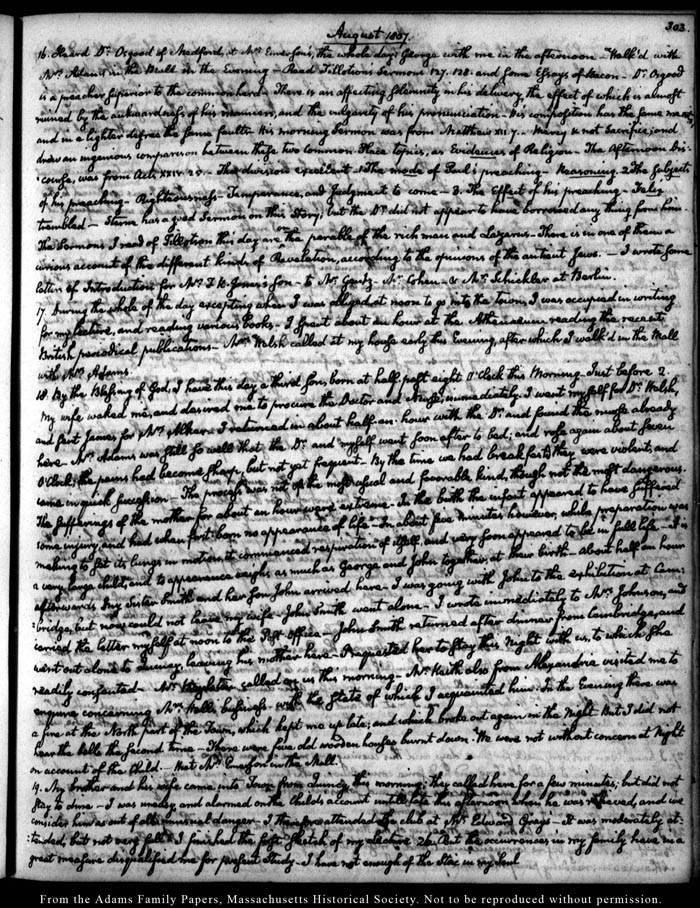 303.
August 1807.
16. Heard Dr. Osgood of Medford, at Mr. Emerson's, the whole day; George with me in the afternoon. Walk'd with
Mrs. Adams in the Mall in the Evening — Read Tillotson's Sermons 127. 128. and some Essays of Bacon — Dr. Osgood
is a preacher superior to the common herd — There is an affecting solemnity in his delivery, the effect of which is almost
ruined by the awkwardness of his manners, and the vulgarity of his pronunciation — His composition has the same merit,
and in a lighter degree the same faults. His morning Sermon was from Matthew XII. 7. — Mercy is not Sacrifice; and
drew an ingenious comparison between these two common-place topics, as Evidences of Religion — The Afternoon Dis-
course, was from Acts, XXIV. 25. — The division excellent. 1 The mode of Paul's preaching — Reasoning. 2 The subjects
of his preaching — Righteousness — Temperance, and Judgment to come — 3. The Effect of his preaching — Felix
trembled — Sterne has a good Sermon on this Story; but the Dr. did not appear to have borrowed any thing from him.
The Sermons I read of Tillotson this day are on the parable of the rich man and Lazarus — There is in one of them a
curious account of the different kinds of Revelation, according to the opinions of the antient Jews. — I wrote some
letters of Introduction for Mr. T. K. Jones's Son — to Mr. Gentz — Mr. Cohen — & Mr. Schickler at Berlin.
17. During the whole of the day excepting when I was obliged at noon to go into the Town, I was occupied in writing
for my lecture, and reading various books — I spent about an hour at the Athenaeum, reading the recent
British periodical publications — Mrs. Welsh called at my house early this Evening, after which I walk'd in the Mall
with Mrs. Adams.
18. By the Blessing of God, I have this day a third Son, born at half past eight O'Clock this Morning — Just before 2.
my wife waked me, and desired me to procure the Doctor and Nurse, immediately. I went myself for Dr. Welsh,
and sent James for Mrs. I returned in about half an hour with the Dr. and found the nurse already
here — Mrs. Adams was still so well that the Dr. and myself went soon after to bed; and rose again about seven
O'Clock; the pains had become sharp, but not yet frequent — By the time we had breakfasted they were violent, and
came in quick succession — The process was not of the most and favorable kind, though not the most dangerous.
The sufferings of the mother for about an hour were extreme. In the birth the infant appeared to have suffered
some injury, and had when first born no appearance of life — In about five minutes however, while preparation was
making to set its lungs in motion it commenced respiration of itself, and very soon appeared to be in full life — It is
a very large child, and to appearance weighs as much as George and John together, at their birth. About half an hour
afterwards my Sister Smith and her Son John arrived here — I was going with John to the exhibition at Cam-
bridge, but now could not leave my wife — John Smith went alone — I wrote immediately to Mrs. Johnson, and
carried the letter myself at noon to the Post-Office — John Smith returned after dinner from Cambridge, and
went out alone to Quincy, leaving his mother here — I requested her to stay this Night with us, to which she
readily consented — called on us this morning — Mr. Keith also from Alexandria visited me to
enquire concerning Mrs. business with the State of which I acquainted him. In the Evening there was
a fire at the North part of the Town, which kept me up late; and which broke out again in the Night But I did not
hear the bells the second time — There were five old wooden houses burnt down. We were not without concern at Night
on account of the Child. Met Mr. Emerson in the Mall.
19. My brother and his wife came into Town from Quincy this morning; they called here for a few minutes; but did not
stay to dine — I was uneasy and alarmed on the Child's account untill late this afternoon when he was relieved, and we
consider him as out of all unusual danger — I therefore attended the club at Mr. Edward Gray's — It was moderately at-
tended, but not very full. I finished the first sketch of my Lecture 26. But the occurrences in my family have in a
great measure disqualified me for present Study — I have not enough of the Stoic in my Soul
From the Adams Family Papers, Massachusetts Historical Society. Not to be reproduced without permission.